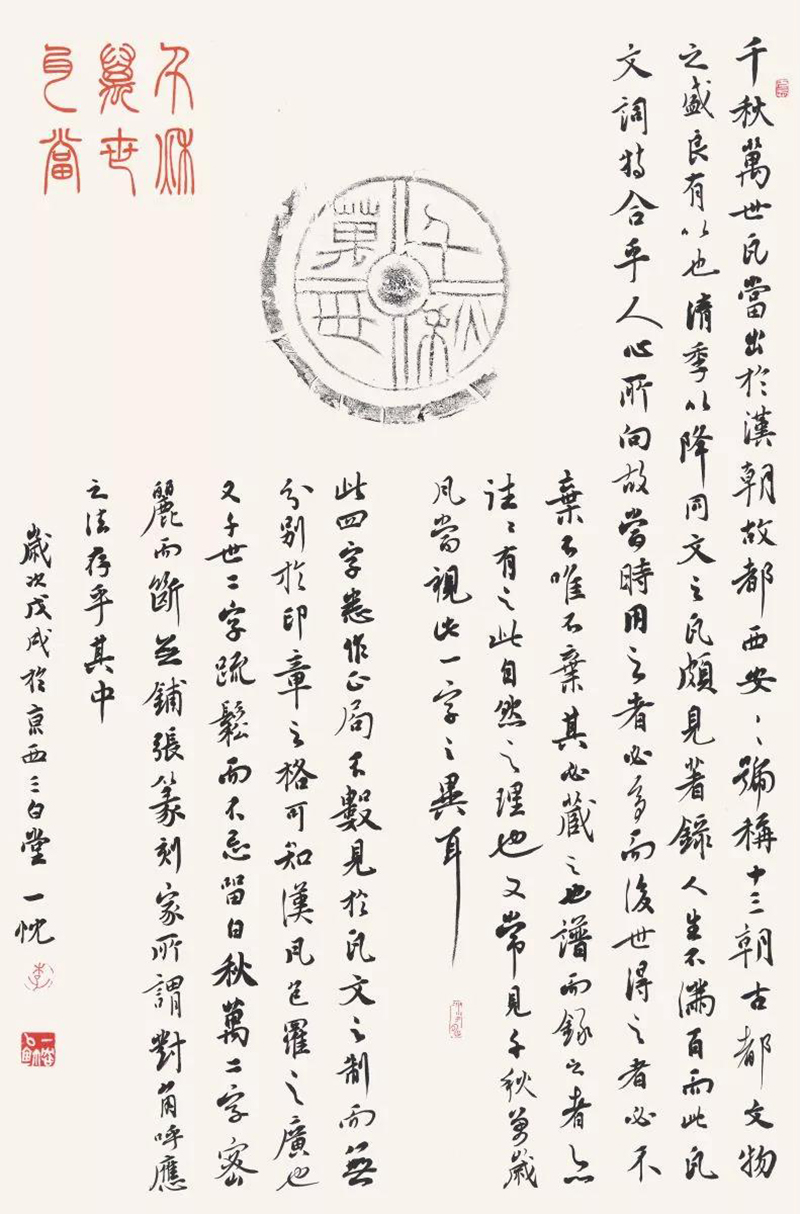 千秋
萬世
瓦當
千秋
萬世
千秋萬世瓦當出於漢朝故都西安〻號稱十三朝古都文物
之盛良有以也清季以降同文之瓦頗見著錄人生不滿百而此瓦
文詞特合乎人心所向故當時用之者必多而後世得之者必不
棄不唯不棄其必藏之也譜而錄之者亦
往〻有之此自然之理也又常見千秋萬歲
瓦當視此一字之異耳
此四字悉作正局不數見於瓦文之制而無
分別於印章之格可知漢瓦包羅之廣也
又千世二字疏鬆而不忌留白秋萬二字密
麗而斷無鋪張篆刻家所謂對角呼應
之法存乎其中
歲次戊戌於京西三白堂一忱
李